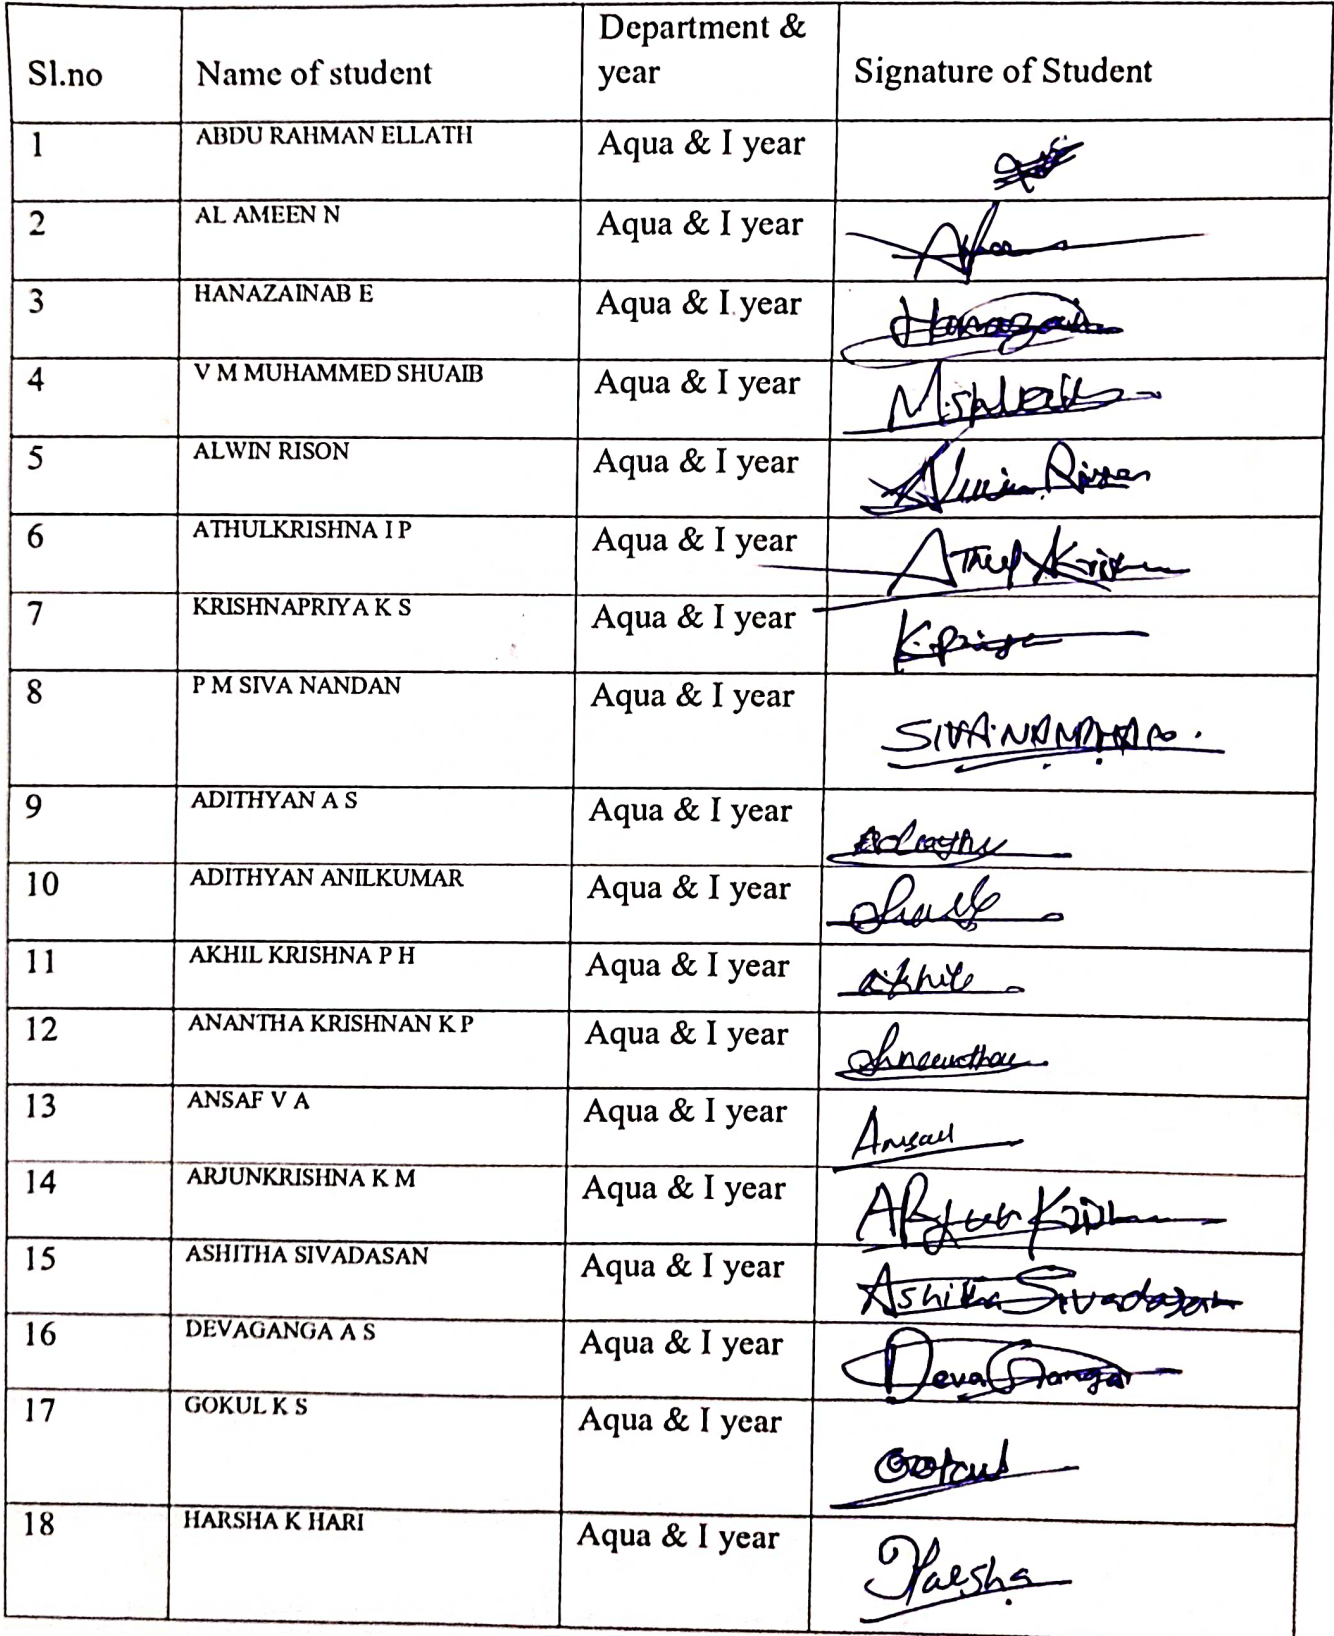 Sl.no Name of student Department & year Signature of Student
1 ABDU RAHMAN ELLATH Aqua & I year
2 AL AMEEN N Aqua & I year
3 HANAZAINAB E Aqua & I year
4 V M MUHAMMED SHUAIB Aqua & I year
5 ALWIN RISON Aqua & I year Alwin Rison
6 ATHULKRISHNA I P Aqua & I year
7 KRISHNAPRIYA K S Aqua & I year K.priya
8 P M SIVA NANDAN Aqua & I year
9 ADITHYAN A S Aqua & I year
10 ADITHYAN ANILKUMAR Aqua & I year
11 AKHIL KRISHNA P H Aqua & I year akhil
12 ANANTHA KRISHNAN K P Aqua & I year
13 ANSAF V A Aqua & I year
14 ARJUNKRISHNA K M Aqua & I year
15 ASHITHA SIVADASAN Aqua & I year Ashitha Sivadasan
16 DEVAGANGA A S Aqua & I year Deva Ganga
17 GOKUL K S Aqua & I year Gokul
18 HARSHA K HARI Aqua & I year Harsha